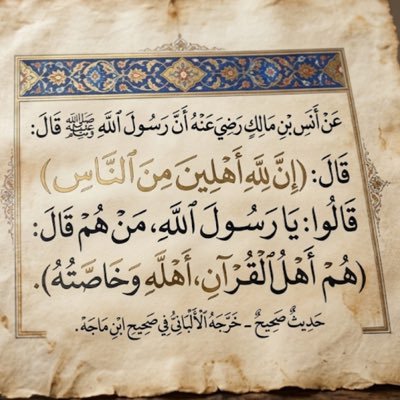 عَنْ أَنَسِ بْنِ مَالِكٍ رَضِيَ عَنْهُ أَنَّ رَسُولَ اللَّهِ ﷺ قَالَ:
قَالَ: (إِنَّ لِلَّهِ أَهْلِينَ مِنَ ٱلنَّاسِ)
قَالُوا: يَا رَسُولَ ٱللَّهِ، مَنْ هُمْ قَالَ:
(هُمْ أَهْلُ ٱلْقُرْآنِ، أَهْلُهِ وَخَاصَّتُهُ).
حَدِيثٌ صَحِيحٌ - خَرَّجَهُ ٱلْأَلْبَانِيُّ فِي صَحِيحِ ابْنِ مَاجَهْ.